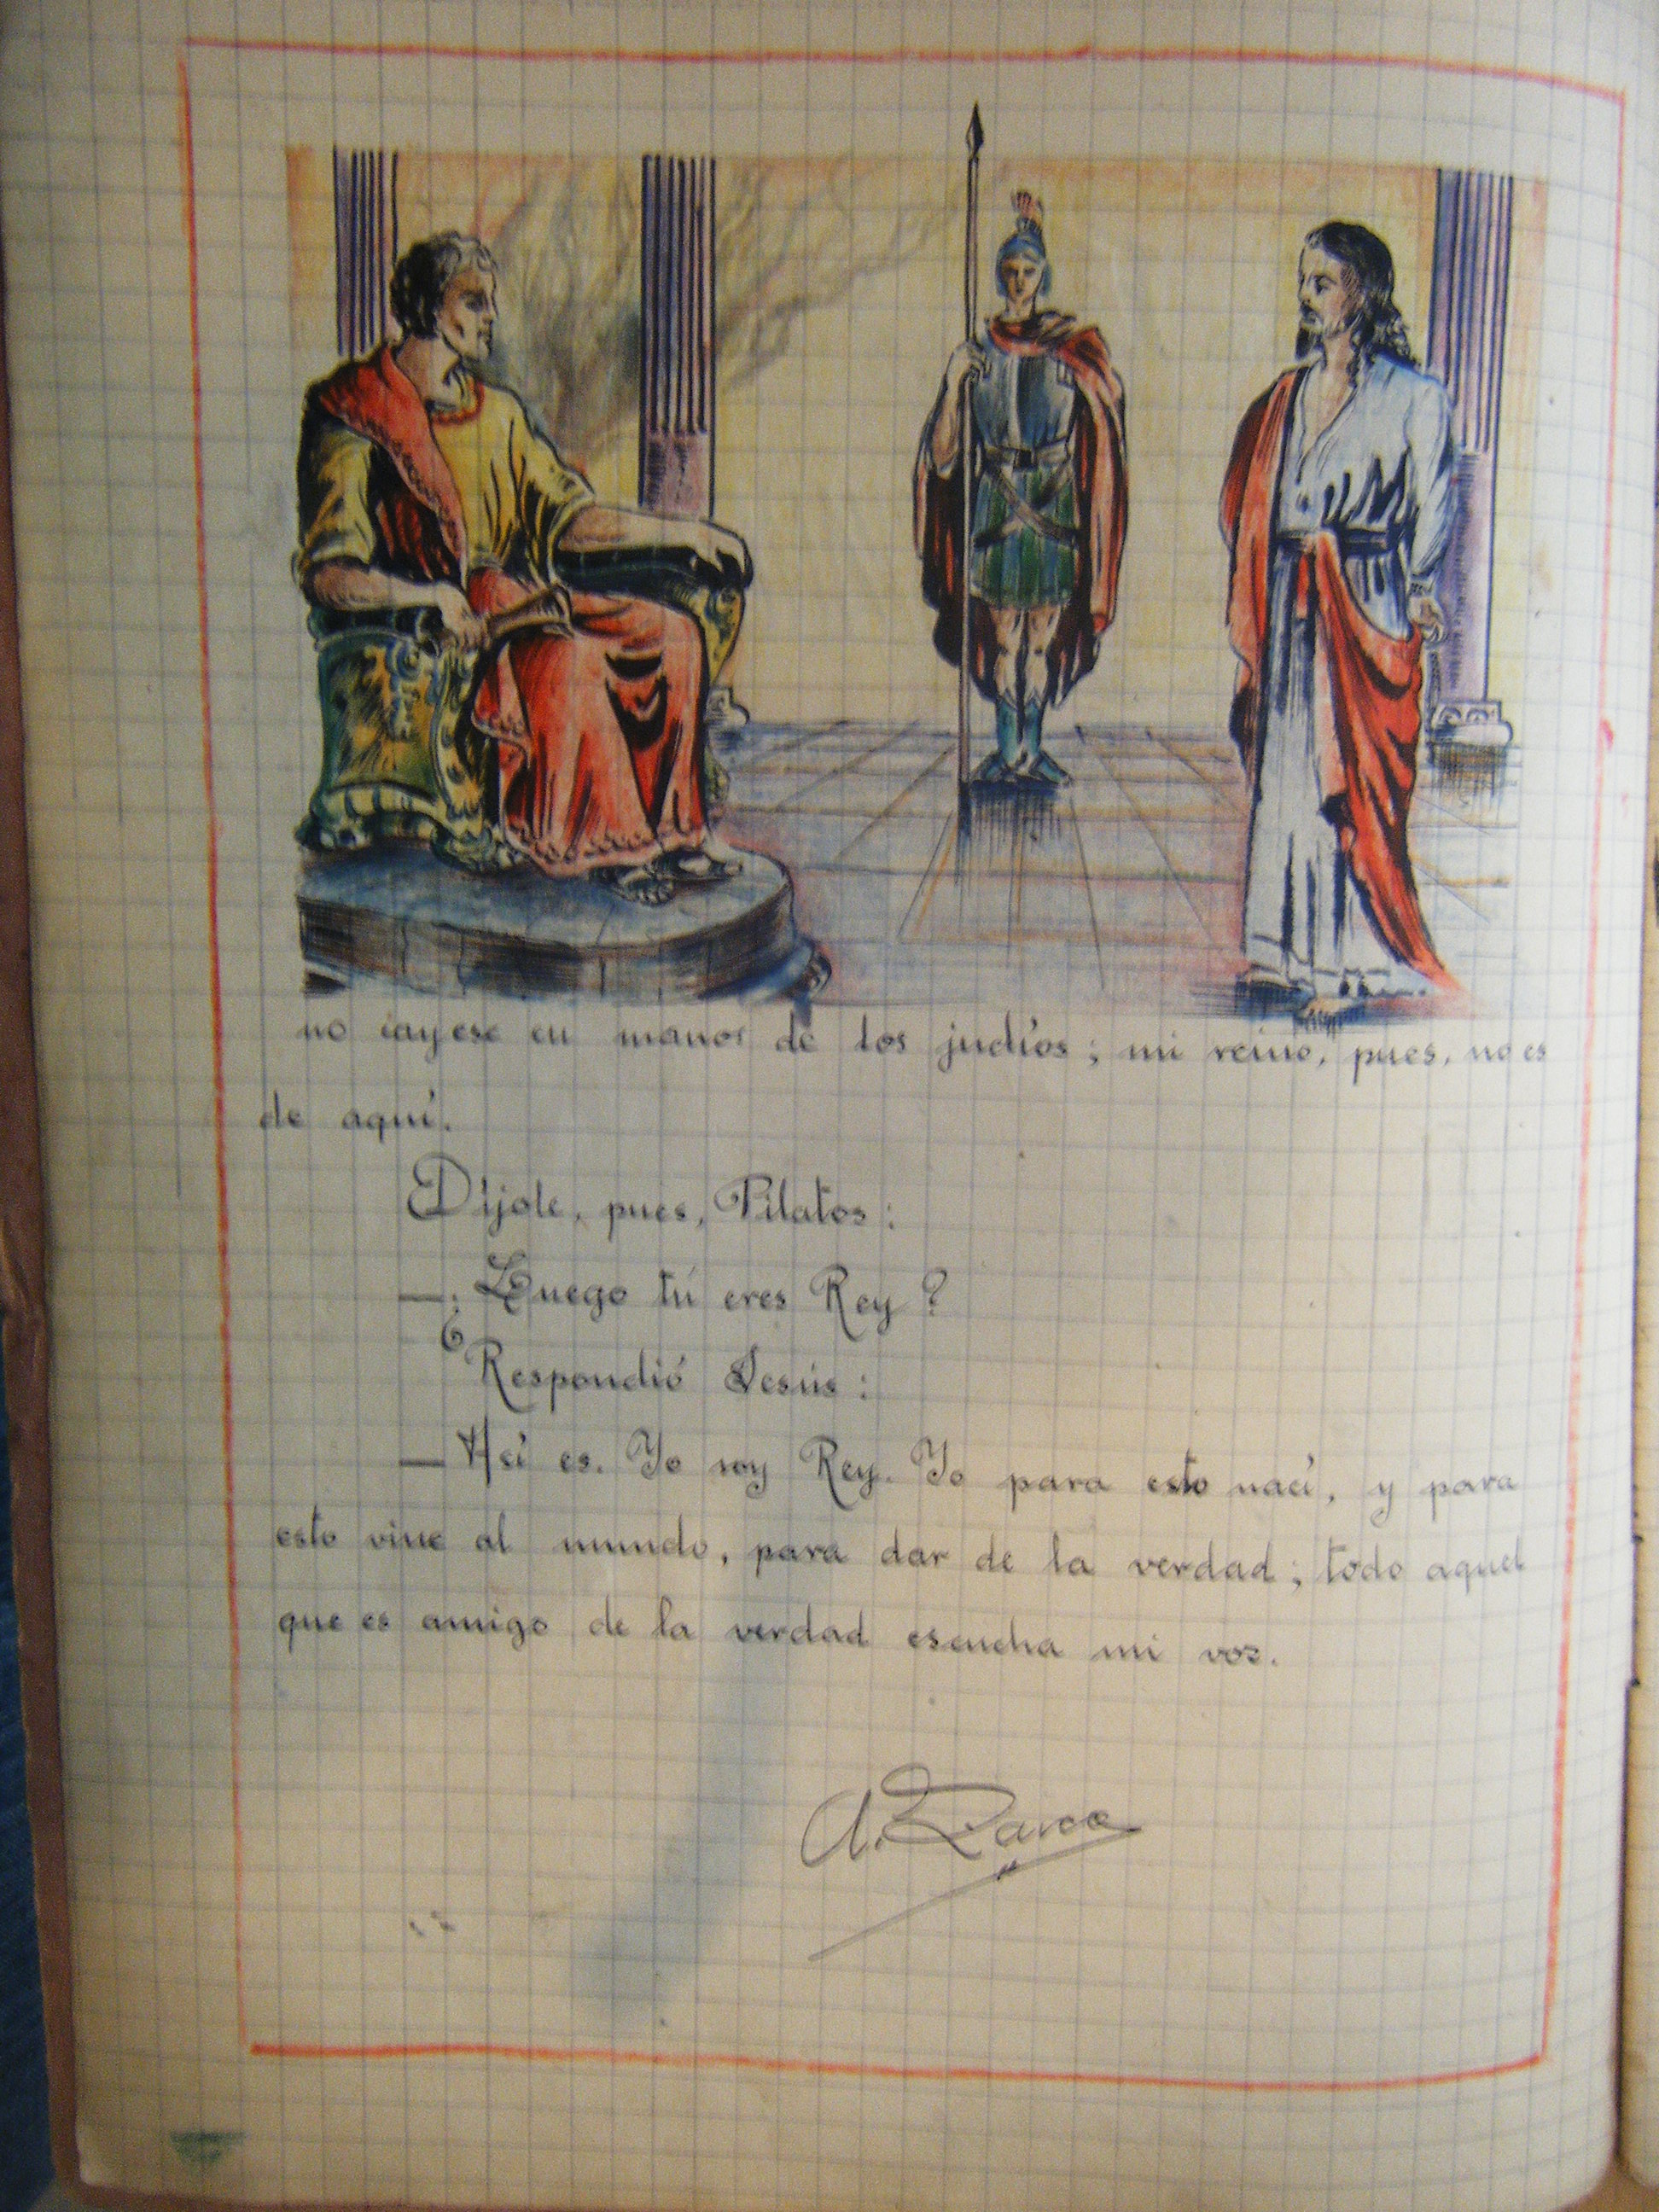 no cayese en manos de los judíos; mi reino, pues, no es
de aquí.
Díjole, pues, Pilatos:
—¿Luego tú eres Rey?
Respondió Jesús:
—Así es. Yo soy Rey. Yo para esto nací, y para
esto vine al mundo, para dar de la verdad; todo aquel
que es amigo de la verdad escucha mi voz.